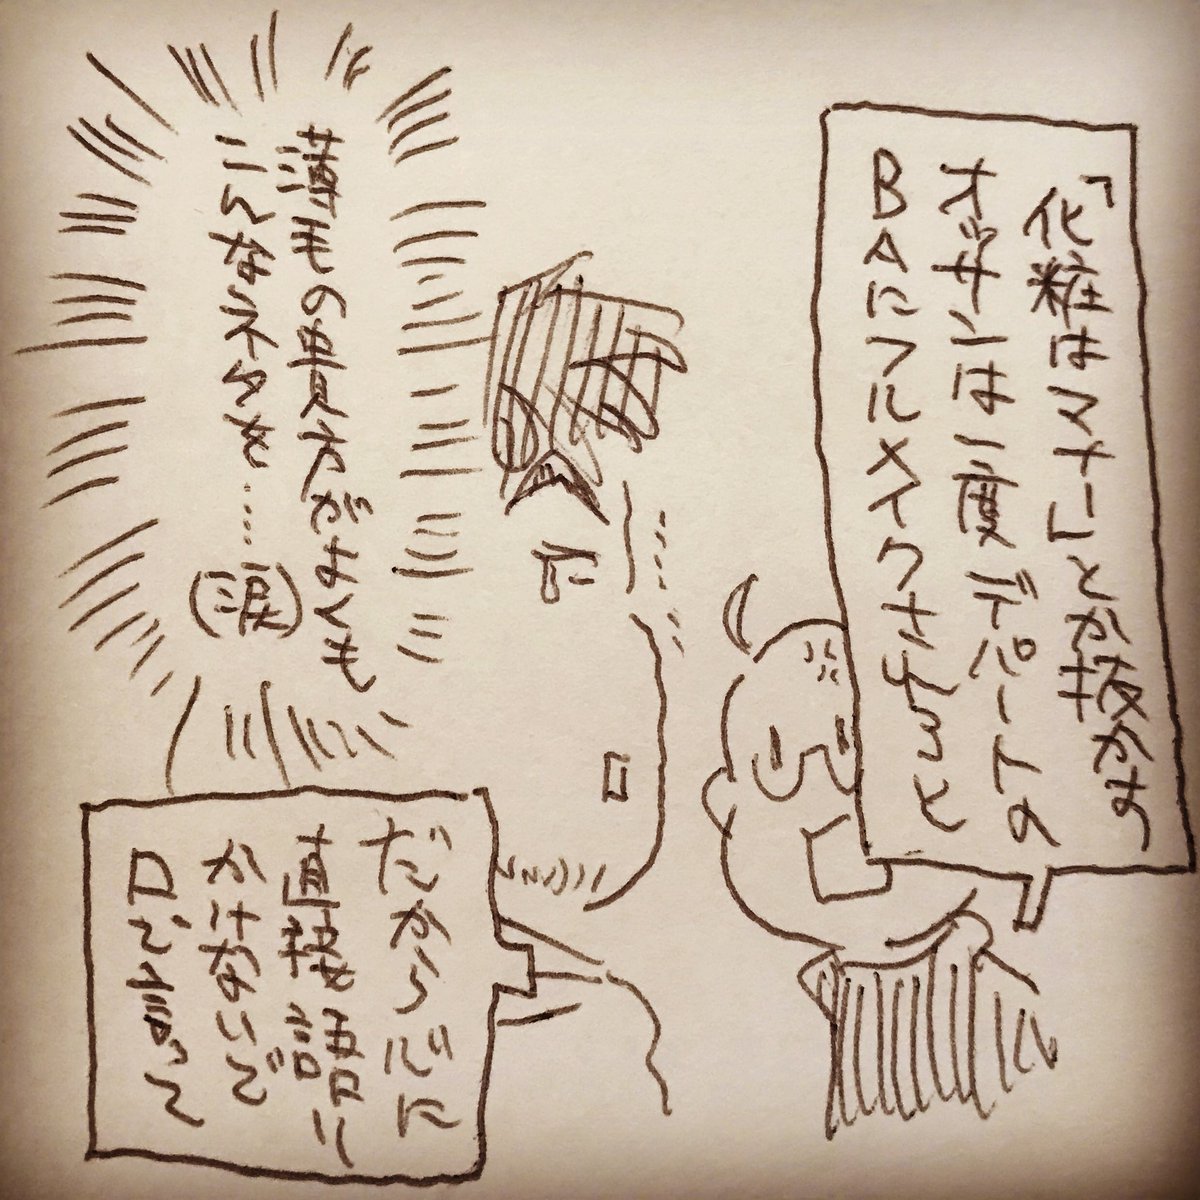 「化粧はマナー」とか抜かす
オッサンは一度デパートの
BAにフルメイクされろと
薄毛の貴方がよくも
こんなネタを……(涙)
だから心に
直接語り
かけないで
口で言って